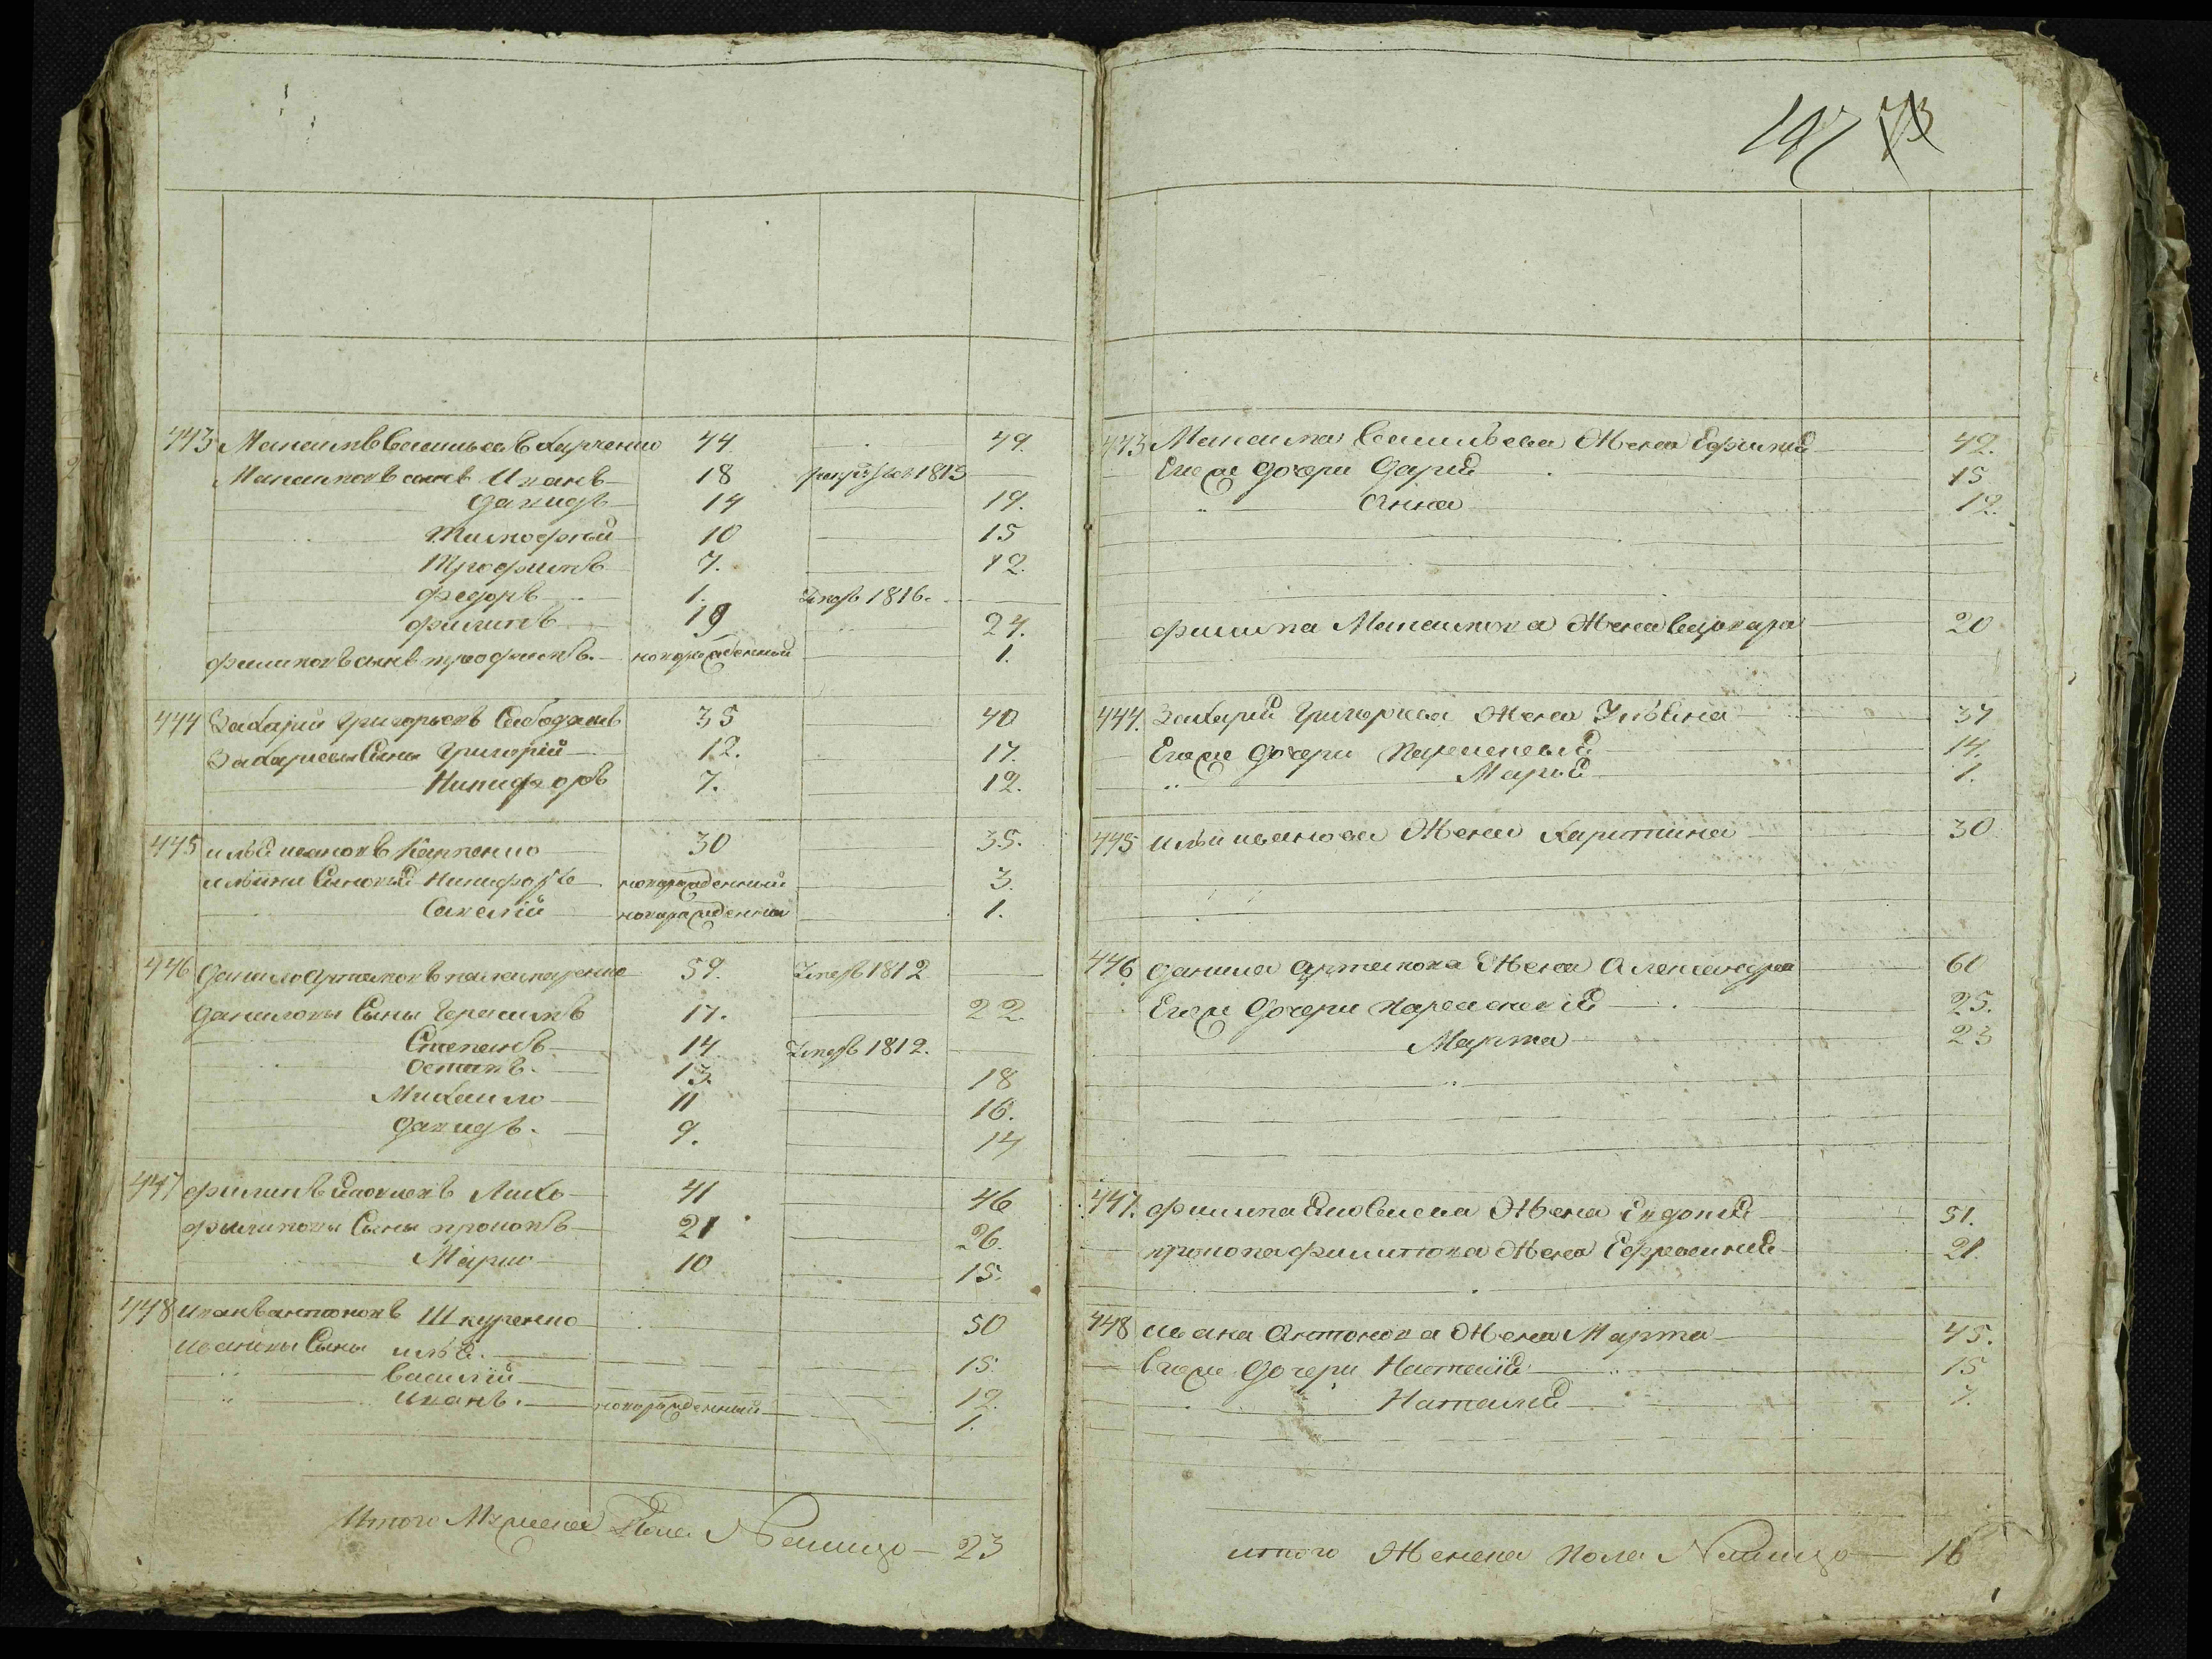 197 73
443 Максимъ Васильевъ Харченко 44. 49.
Максимовъ сынъ Иванъ 18 1813
Давидъ 14 19.
Тимофей 10 15
Трофимъ 7. 12.
Федоръ 1. 1816.
Филипъ 19 24.
Филиповъ сынъ Трофимъ. новорожденный 1.
444 Захарий Григорьевъ 35 40
Захариевы Сыны Григорій 12. 17.
Никифоръ 7. 12.
445 Илья Ивановъ Карпенко 30 35.
Ильины Сыновья Никифоръ новорожденный 3.
Савелій новорожденный 1.
446 Данило Артемовъ 59. 1812
Даниловы Сыны Герасимъ 17. 22.
Степанъ 14 1812.
Остапъ. 13. 18
Михайло 11 16.
Давидъ. 9. 14
447 Филипъ Яковлевъ Лихо 41 46
Филиповы Сыны Прокопъ 21 26.
Марко 10 15.
448 Иванъ Антоновъ Шкуренко 50
Ивановы Сыны Илья. 15.
Василій 12.
Иванъ. новорожденный 1.
Итого Мужеска Пола Налицо 23
443 Максима Васильева Жена Ефимия 42.
Егоже Дочери Дария 15
Анна 12.
Филипа Максимова Жена Варвара 20
444. Захария Григорьева Жена Ульяна 37
Егоже Дочери 14.
Мария 1.
445 Ильи Иванова Жена Харитина 30
446 Данила Артемова Жена Александра 60
Егоже Дочери 25.
Марта 23
447. Филипа Яковлева Жена Евдокия 51.
Прокопа Филипова Жена Ефросиния 21.
448 Ивана Антонова Жена Марта 45.
Егоже Дочери Настасія 15
Наталия 7.
итого Женска Пола Налицо 16